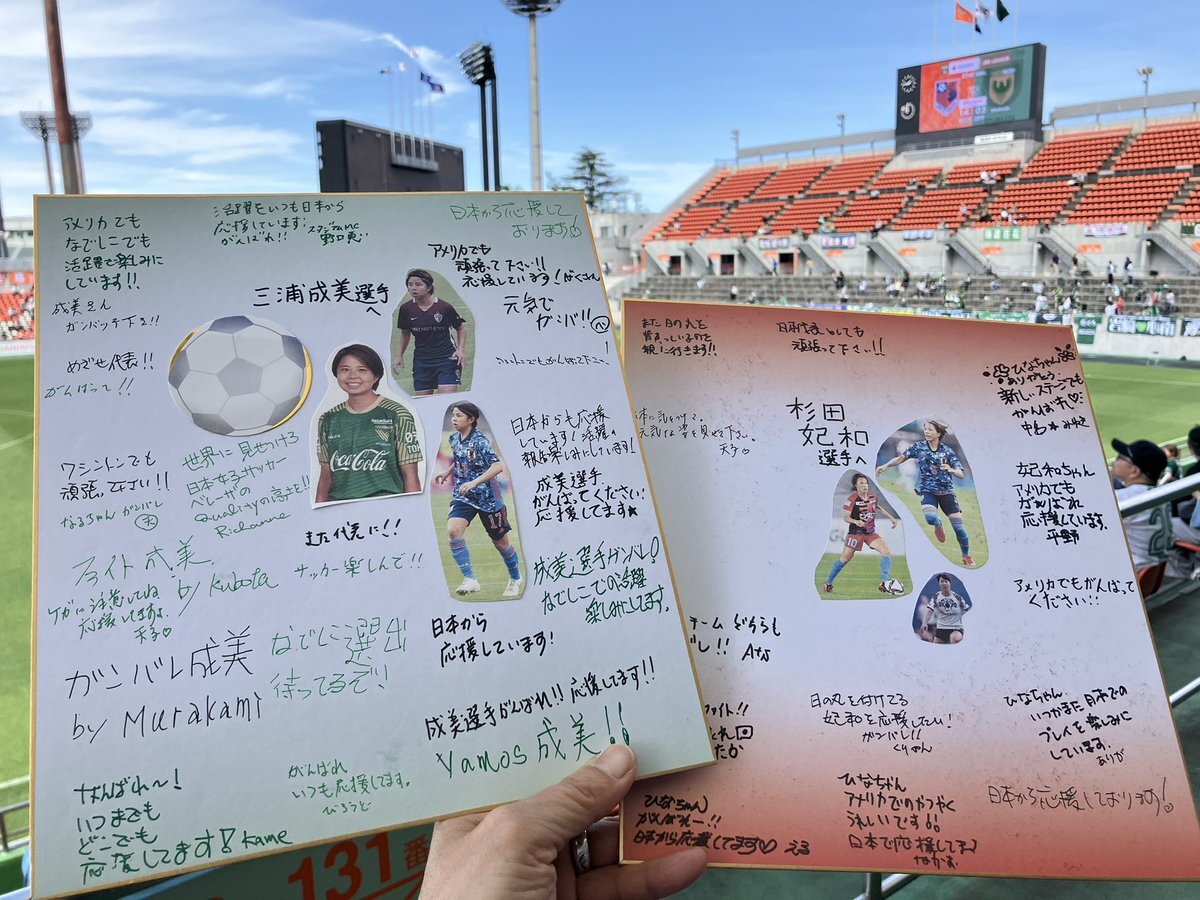 アメリカでも
なでしこでも
活躍を楽しみに
しています!!
活躍をいつも日本から
応援しています!
がんばれ!!
スタジアムMC
日本から応援して
おります
成美さん
ガンバッテ下さい!!
めざせ代表!!
がんばって!!
三浦成美選手
へ
アメリカでも
頑張って下さい!!
応援しています!
元気で
ガンバ!!
ワシントンでも
頑張って下さい!!
なるちゃん ガンバレ
世界に見せつけろ
日本女子サッカー
ベレーザの
Qualityの高さを!!
Richanne
Coca-Cola
17
日本からも応援
しています!活躍の
報を楽しみにしています!
成美選手
がんばってください
応援してます★
また代表に!!
ファイト成美
by Kubota
ケガに注意してね
応援してます。
天子♡
サッカー楽しんで!!
成美選手ガンバレ!
なでしこでの活躍
楽しみにしてます。
ガンバレ成美
by Murakami
なでしこ選出
待ってるぞ!
日本から
応援しています!
成美選手がんばれ!!応援してます!!
Yamos 成美!!
がんばれ〜!
いつまでも
どこでも
応援してます! Kame
がんばれ
いつも応援してます。
ひろっと
131番
また日の丸を
観に行きます!!
頑張って下さい!!
ひなちゃん
ありがとう
新しいステージでも
がんばれ♡
杉田
妃和
選手へ
10
元気な姿を見せて下さい
天子♡
妃和ちゃん
アメリカでも
がんばれ
応援しています。
平野
アメリカでもがんばって
ください!!
チーム
日の丸を付けてる
妃和を応援したい!
ガンバレ!!
くりやん
ひなちゃん
いつかまた日本での
プレイを楽しみに
しています。
ありが
ファイト!!
ひなちゃん
がんばれー!!
日本から応援してます♡
ひなちゃん
アメリカでのかつやく
うれしいです!!
日本で応援してる
日本から応援しております!